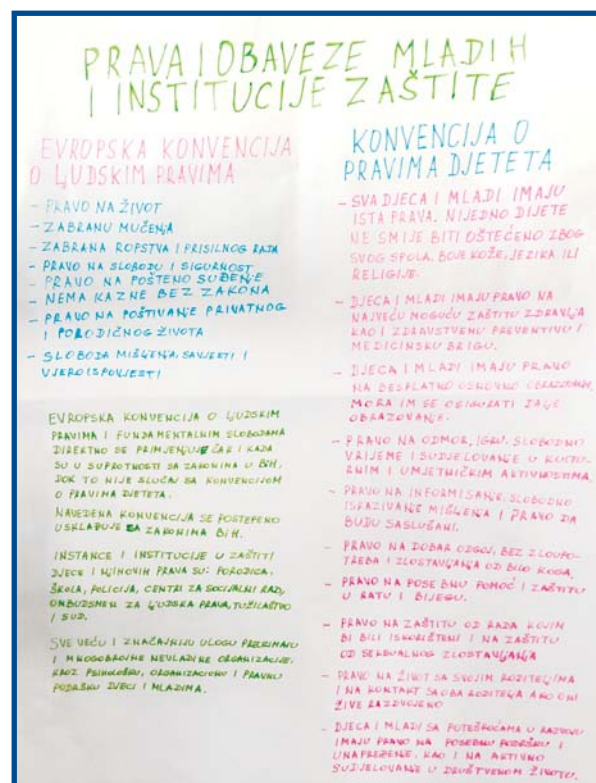 PRAVA I OBAVEZE MLADIH
I INSTITUCIJE ZAŠTITE
EVROPSKA KONVENCIJA
O LJUDSKIM PRAVIMA
- PRAVO NA ŽIVOT
- ZABRANU MUČENJA
- ZABRANA ROPSTVA I PRISILNOG RADA
- PRAVO NA SLOBODU I SIGURNOST
- PRAVO NA POŠTENO SUĐENJE
- NEMA KAZNE BEZ ZAKONA
- PRAVO NA POŠTIVANJE PRIVATNOG
I PORODIČNOG ŽIVOTA
- SLOBODA MIŠLJENJA, SAVJESTI I
VJEROISPOVJESTI
EVROPSKA KONVENCIJA O LJUDSKIM
PRAVIMA I FUNDAMENTALNIM SLOBODAMA
DIREKTNO SE PRIMJENJUJE ČAK I KADA
SU U SUPROTNOSTI SA ZAKONIMA U BIH,
DOK TO NIJE SLUČAJ SA KONVENCIJOM
O PRAVIMA DJETETA.
NAVEDENA KONVENCIJA SE POSTEPENO
USKLAĐUJE SA ZAKONIMA BIH.
INSTANCE I INSTITUCIJE U ZAŠTITI
DJECE I NJIHOVIH PRAVA SU: PORODICA,
ŠKOLA, POLICIJA, CENTRI ZA SOCIJALNI RAD,
OMBUDSMEN ZA LJUDSKA PRAVA, TUŽILAŠTVO
I SUD.
SVE VEĆU I ZNAČAJNIJU ULOGU PREUZIMAJU
I MNOGOBROJNE NEVLADINE ORGANIZACIJE,
KROZ PSIHOLOŠKU, ORGANIZACIONU I PRAVNU
PODRŠKU DJECI I MLADIMA.
KONVENCIJA O
PRAVIMA DJETETA
- SVA DJECA I MLADI IMAJU
ISTA PRAVA. NIJEDNO DIJETE
NE SMIJE BITI OŠTEĆENO ZBOG
SVOG SPOLA, BOJE KOŽE, JEZIKA ILI
RELIGIJE.
- DJECA I MLADI IMAJU PRAVO NA
NAJVEĆU MOGUĆU ZAŠTITU ZDRAVLJA
KAO I ZDRAVSTVENU PREVENTIVU I
MEDICINSKU BRIGU.
- DJECA I MLADI IMAJU PRAVO
NA BESPLATNO OSNOVNO OBRAZOVANJE,
MORA IM SE OSIGURATI DALJE
OBRAZOVANJE.
- PRAVO NA ODMOR, IGRU, SLOBODNO
VRIJEME I SUDJELOVANJE U KULTURNIM
I UMJETNIČKIM AKTIVNOSTIMA.
- PRAVO NA INFORMISANJE, SLOBODNO
ISRAZIVANJE MIŠLJENJA I PRAVO DA
BUDU SASLUŠANI.
- PRAVO NA DOBAR ODGOJ, BEZ ZLOUPO-
TREBA I ZLOSTAVLJANJA OD BILO KOGA.
- PRAVO NA POSEBNU POMOĆ I ZAŠTITU
U RATU I BIJEGU.
- PRAVO NA ZAŠTITU OD RADA KOJIM
BI BILI ISKORIŠTENI I NA ZAŠTITU
OD SEKSUALNOG ZLOSTAVLJANJA
- PRAVO NA ŽIVOT SA SVOJIM RODITELJIMA
I NA KONTAKT SA OBA RODITELJA AKO ONI
ŽIVE RAZDVOJENO
- DJECA I MLADI SA POTEŠKOĆAMA U RAZVOJU
IMAJU PRAVO NA POSEBNU PODRŠKU I
UNAPREĐENJE, KAO I NA AKTIVNO
SUDJELOVANJE U DRUŠTVENOM ŽIVOTU.